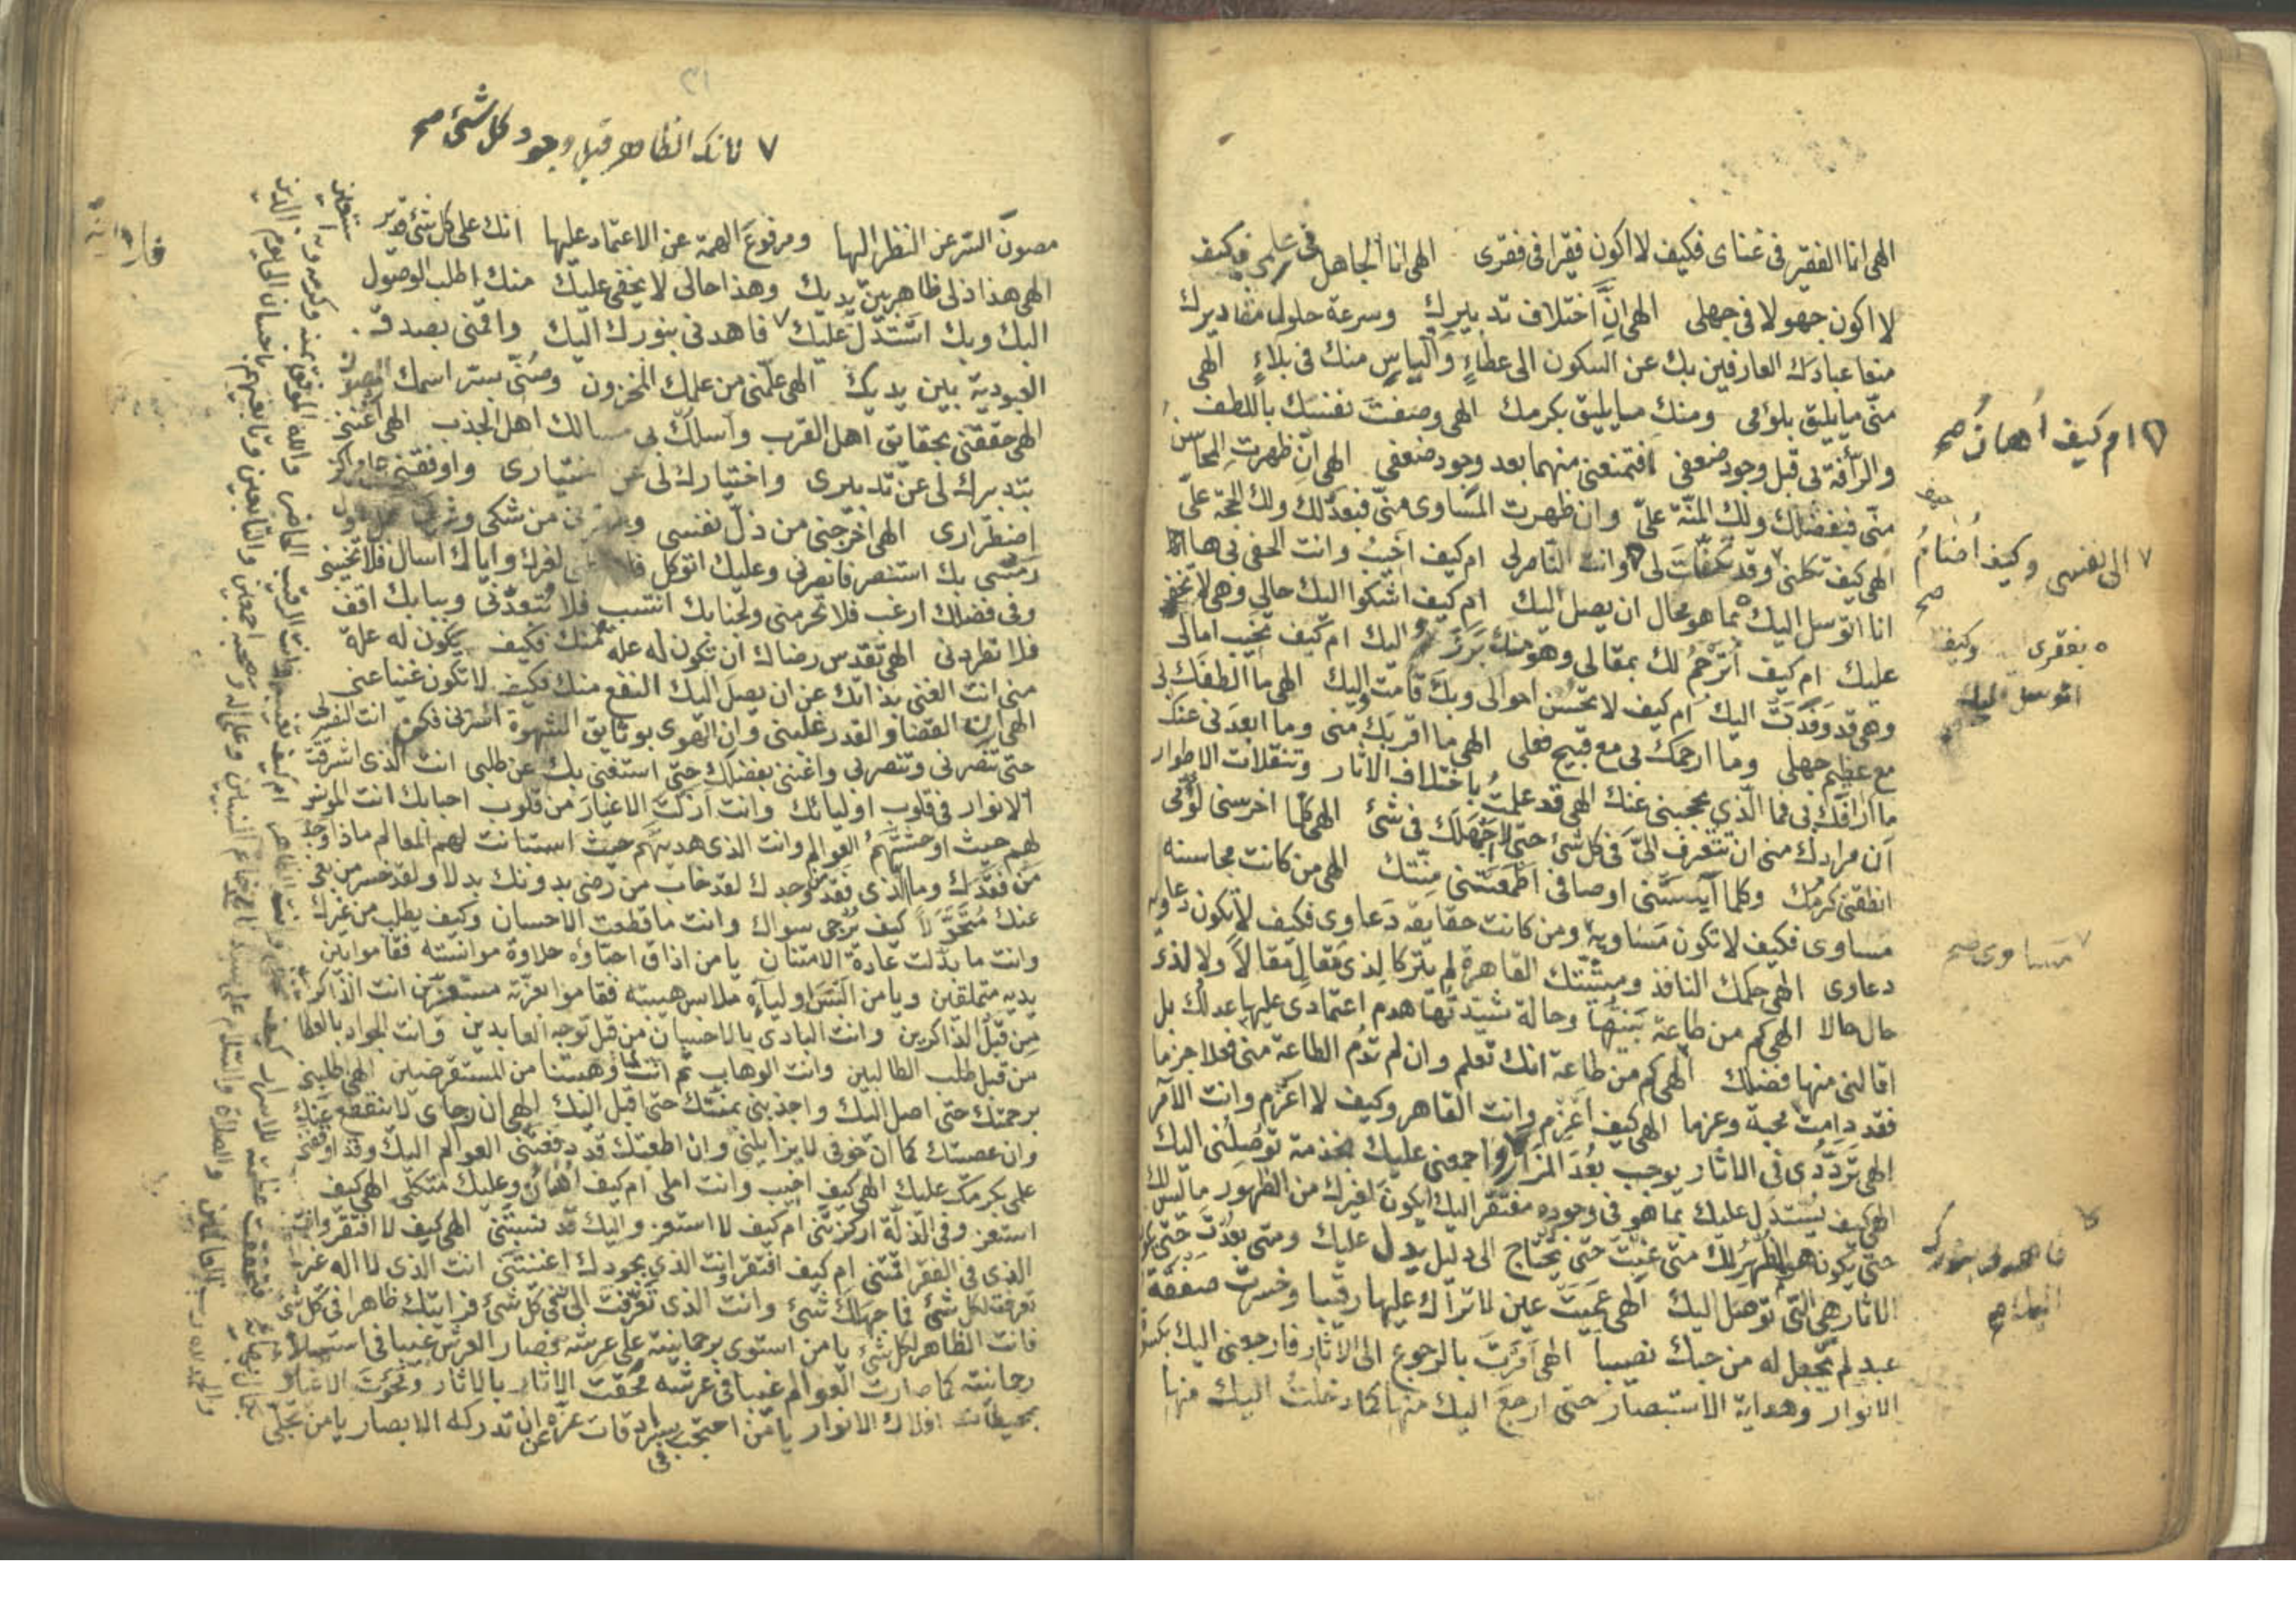 الهى انا الفقير فى غناى فكيف لا اكون فقيرا فى فقرى الهى انا الجاهل فى علمى فكيف
لا اكون جهولا فى جهلى الهى انّ اختلاف تدبيرك وسرعة حلول مقاديرك
منعا عبادك العارفين بك عن السكون الى عطاءٍ والياس منك فى بلاءٍ الهى
منّى ما يليق بلؤمى ومنك ما يليق بكرمك الهى وصفت نفسك باللطف
والرأفة بى قبل وجود ضعفى افتمنعنى منهما بعد وجود ضعفى الهى ان ظهرت المحاسن
منّى فبفضلك ولك المنّة علىّ وان ظهرت المساوى منّى فبعدلك ولك الحجة علىّ
الهى كيف تكلنى وقد تكفّلت لى وانت الناصر لى ام كيف اخيب وانت الحفى بى ها
انا اتوسل اليك بما هو محال ان يصل اليك ام كيف اشكوا اليك حالى وهى لا تخفى
عليك ام كيف اترجم لك بمقالى وهو منك برز اليك ام كيف تخيب امالى
وهى قد وفدت اليك ام كيف لا تحسن احوالى وبك قامت واليك الهى ما الطفك بى
مع عظيم جهلى وما ارحمك بى مع قبيح فعلى الهى ما اقربك منى وما ابعدنى عنك
ما ارافك بى فما الذي يحجبنى عنك الهى قد علمتُ باختلاف الاثار وتنقلات الاطوار
ان مرادك منى ان تتعرف الىّ فى كل شئ حتى لا اجهلك فى شئ الهى كلما اخرسنى لؤمى
انطقنى كرمك وكلما آيستنى اوصافى اطمعتنى منّتك الهى من كانت محاسنه
مساوى فكيف لا تكون مساويه ومن كانت حقايقه دعاوى فكيف لا تكون دعاويه
دعاوى الهى حكمك النافذ ومشيّتك القاهرة لم يتركا لذى مقالٍ مقالاً ولا لذى
حال حالا الهى كم من طاعة بنيتها وحالة شيّدتها هدم اعتمادى عليها عدلك بل
اقالنى منها فضلك الهى كم من طاعة انك تعلم وان لم تدم الطاعة منى فعلا جزما
فقد دامت محبة وعزما الهى كيف اعزم وانت القاهر وكيف لا اعزم وانت الآمر
الهى تردّدى فى الاثار يوجب بُعد المزار واجمعنى عليك بخدمة توصلنى اليك
الهى كيف يُستدل عليك بما هو فى وجوده مفتقر اليك ايكون لغيرك من الظهور ما ليس لك
حتى يكون هو المظهر لك متى غبت حتى تحتاج الى دليل يدل عليك ومتى بعدت حتى تكون
الاثار هى التى توصل اليك الهى عميت عين لا تراك عليها رقيبا وخسرت صفقة
عبد لم تجعل له من حبك نصيبا الهى امرت بالرجوع الى الآثار فارجعنى اليك بكسوة
الانوار وهداية الاستبصار حتى ارجع اليك منها كما دخلت اليك منها
ام كيف اُهان صح
الى نفسى وكيف اُضام
صح
بفقرى وكيف
اتوسل اليك
مساوى صح
فاهدنى بنورك
اليك صح
فانك الظاهر قبل وجود كل شئ صح
مصون السر عن النظر اليها ومرفوع الهمة عن الاعتماد عليها انك على كل شئ قدير
الهى هذا ذلى ظاهر بين يديك وهذا حالى لا يخفى عليك منك اطلب الوصول
اليك وبك استدل عليك فاهدنى بنورك اليك واقمنى بصدق
العبودية بين يديك الهى علّمنى من علمك المخزون وصُنّى بسر اسمك المصون
الهى حققنى بحقايق اهل القرب واسلك بى مسالك اهل الجذب الهى اغننى
بتدبيرك لى عن تدبيرى واختيارك لى عن اختيارى واوقفنى على مراكز
اضطرارى الهى اخرجنى من ذل نفسى وطهرنى من شكى وشركى قبل حلول
رمسى بك استنصر فانصرنى وعليك اتوكل فلا تكلنى لغيرك واياك اسال فلا تخيبنى
وفى فضلك ارغب فلا تحرمنى ولجنابك انتسب فلا تبعدنى وببابك اقف
فلا تطردنى الهى تقدس رضاك ان تكون له علة منك فكيف يكون له علة
منى انت الغنى بذاتك عن ان يصل اليك النفع منك فكيف لا تكون غنيا عنى
الهى ان القضا والقدر غلبنى وان الهوى بوثايق الشهوة اسرنى فكن انت النصير لى
حتى تنصرنى وتنصر بى واغننى بفضلك حتى استغنى بك عن طلبى انت الذى اشرقت
الانوار فى قلوب اوليائك وانت ازلت الاغيار من قلوب احبابك انت المونس
لهم حيث اوحشتهم العوالم وانت الذى هديتهم حيث استبانت لهم المعالم ماذا وجد
من فقدك وما الذى فقد من وجدك لقد خاب من رضى بدونك بدلا ولقد خسر من بغى
عنك متحوّلاً كيف يُرجى سواك وانت ما قطعت الاحسان وكيف يطلب من غيرك
وانت ما بدلت عادة الامتنان يا من اذاق احبّاؤه حلاوة موانسته فقاموا بين
يديه متملقين ويا من البس اولياؤه ملابس هيبته فقاموا بعزته مستعزين انت الذاكر
من قبل الذاكرين وانت البادى بالاحسان من قبل توجه العابدين وانت الجواد بالعطا
من قبل طلب الطالبين وانت الوهاب ثم انت لما وهبتنا من المستقرضين الهى اطلبنى
برحمتك حتى اصل اليك واجذبنى بمنّتك حتى اقبل اليك الهى ان رجاى لا ينقطع عنك
وان عصيتك كما ان خوفى لا يزايلنى وان اطعتك قد دفعتنى العوالم اليك وقد اوقفنى
علمى بكرمك عليك الهى كيف اخيب وانت املى ام كيف اُهان وعليك متكلى الهى كيف
استعز وفى الذلة اركزتنى ام كيف لا استعز واليك قد نسبتنى الهى كيف لا افتقر وانت
الذى فى الفقر اقمتنى ام كيف افتقر وانت الذي بجودك اغنيتنى انت الذى لا اله غيرك
تعرفت لكل شئ فما جهلك شئ وانت الذى تعرفت الىّ فى كل شئ فرايتك ظاهرا فى كل شئ
فانت الظاهر لكل شئ يا من استوى برحمانيته على عرشه فصار العرش غيبا فى
رحمانيته كما صارت العوالم غيبا فى عرشه محقت الاثار بالاثار ومحوت الاغيار
بمحيطات افلاك الانوار يا من احتجب فى سرادقات عزه عن ان تدركه الابصار يا من تجلى
بكمال بهائه فتحققت عظمته الاسرار كيف تخفى وانت الظاهر ام كيف تغيب وانت الرقيب الحاضر والله الموفق
والحمد لله رب العالمين والصلاة والسلام على سيدنا محمد خاتم النبيين وعلى اله وصحبه اجمعين والتابعين وتابعيهم باحسان الى يوم الدين